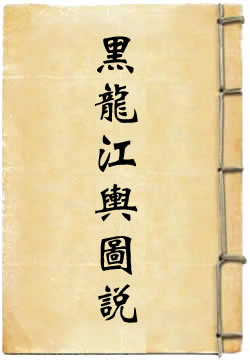 黑龍江輿圖說